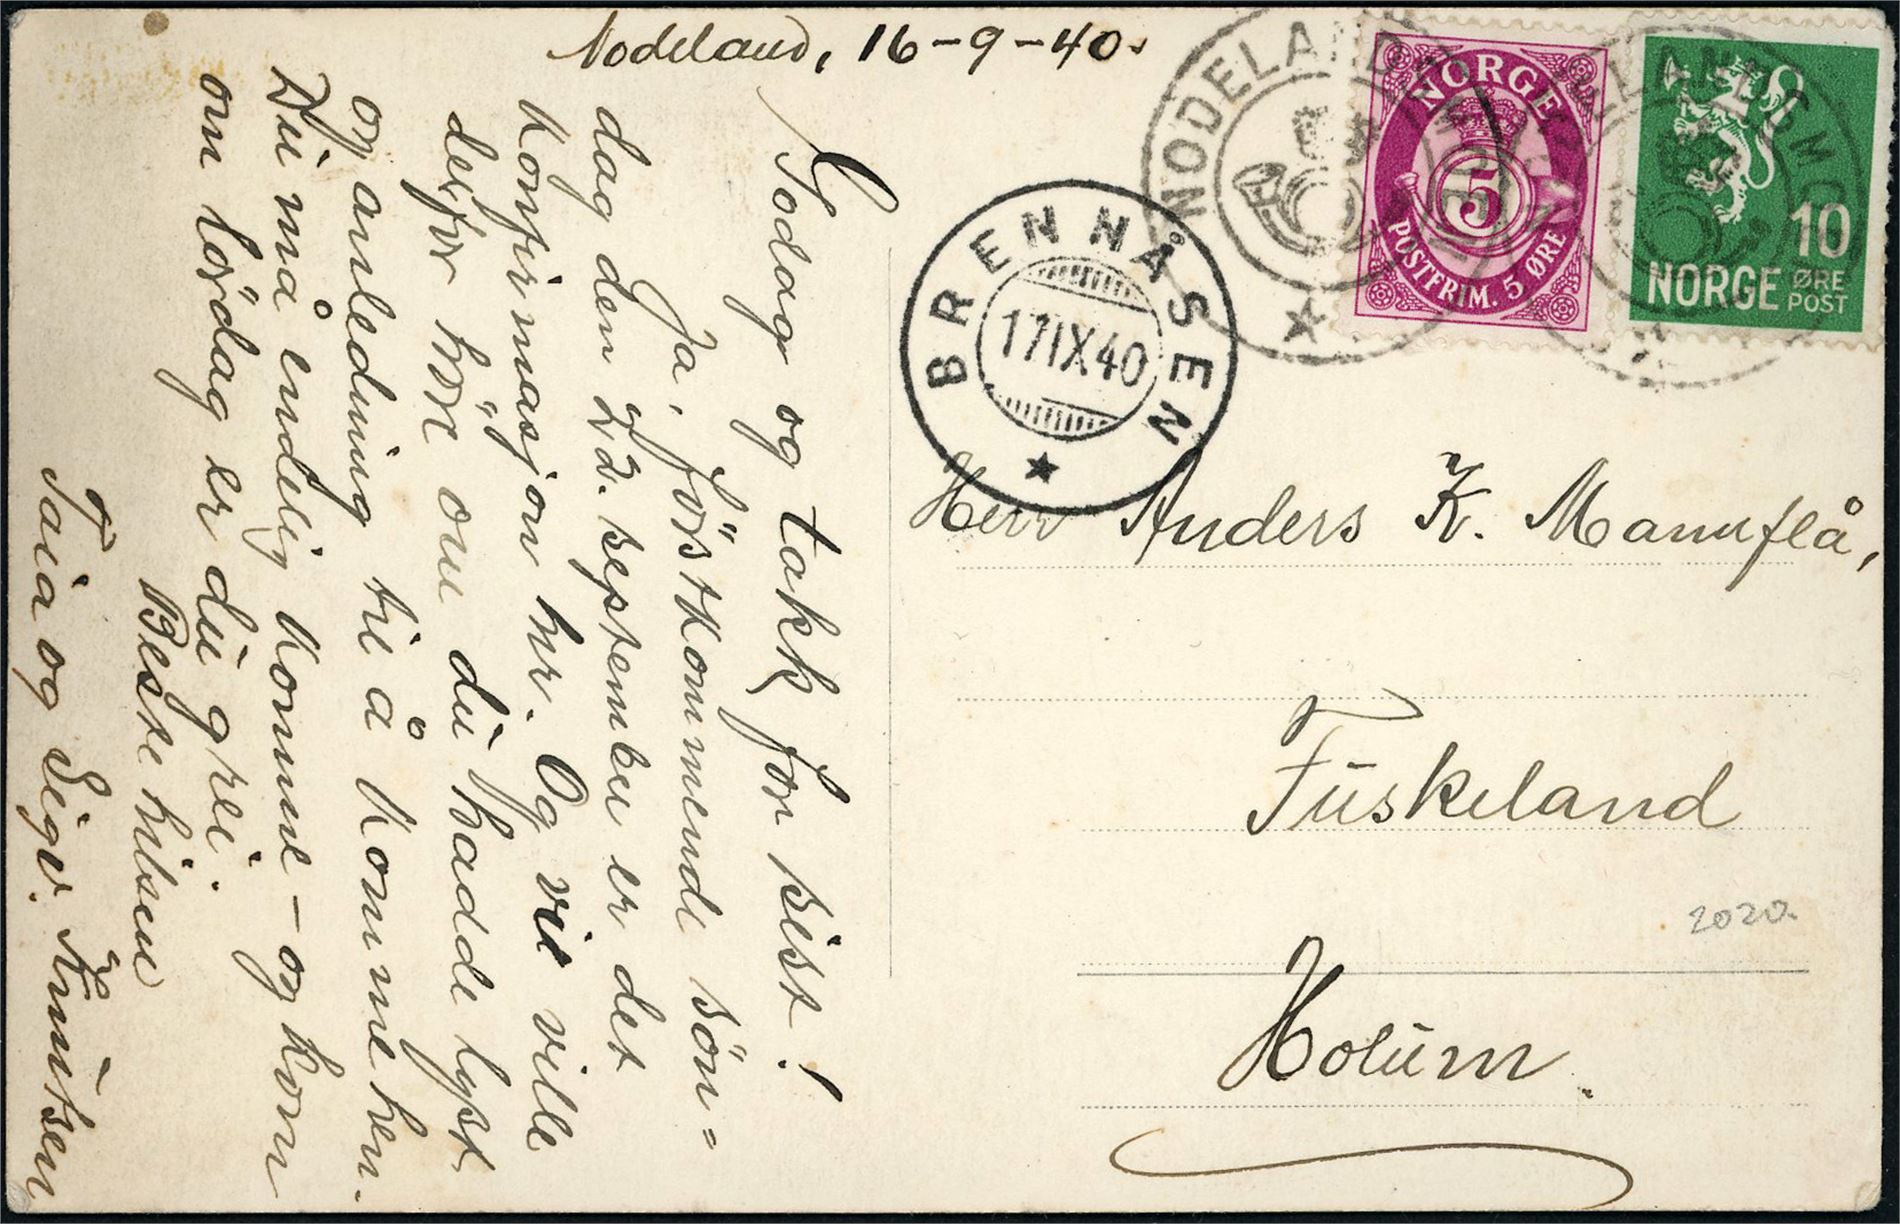 Nodeland, 16-9-40.
Godag og takk for sist!
Ja, förstkommende sön=
dag den 22. september er det
Konfirmasjon her. Og vi ville
derfor höre om du hadde lyst
og anledning til å komme hen.
Du må endelig komme - og kom
om lördag er du grei.
Beste hilsen
Taia og Sigv. Knutsen
NODELAND
NORGE
5
POSTFRIM. 5 ØRE
10
NORGE ØRE
POST
BRENNÅSEN
17 IX 40
Herr Anders K. Mannflå,
Fuskeland
2020.
Holum.